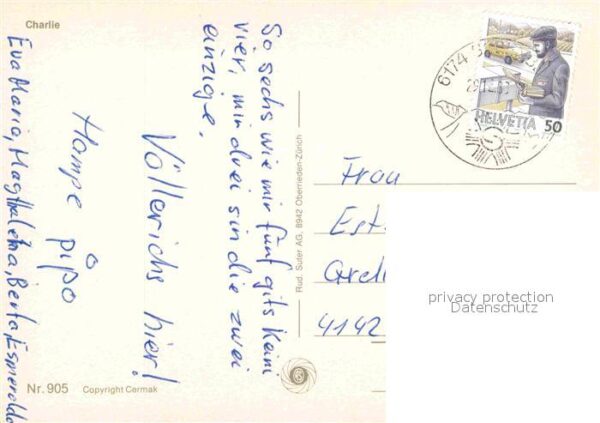 Charlie
So sechs wie mir fünf gits keini
vier, mir drei sind die zwei
einzige.
Völlerichs hier!
Hampe pipo
Eva Maria, Magthalena, Berta, Esmeralda
Nr. 905
Copyright Cermak
Rud. Suter AG, 8942 Oberrieden-Zürich
6174
HELVETIA
50
Frau
Est
4142
privacy protection
Datenschutz